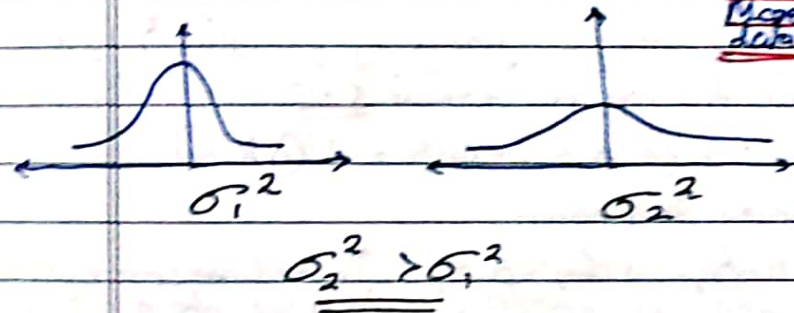 σ₁²
σ₂²
σ₂² > σ₁²